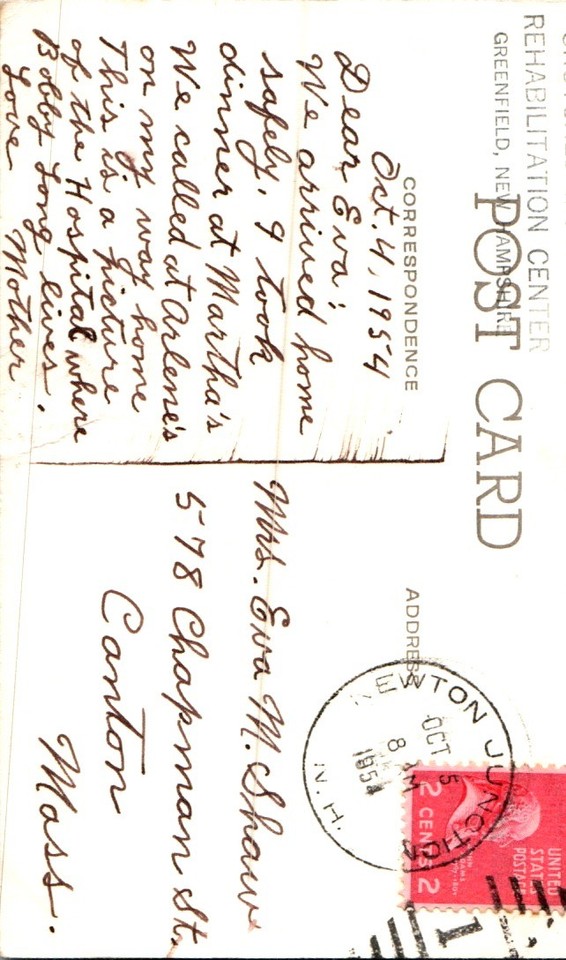 REHABILITATION CENTER
GREENFIELD, NEW HAMPSHIRE
POST CARD
CORRESPONDENCE
ADDRESS
Oct. 4, 1954
Dear Eva:
We arrived home
safely, I took
dinner at Martha's
We called at Arlene's
on my way home
This is a picture
of the Hospital where
Bobby Long lives.
Love
Mother
Mrs. Eva M. Shaw
578 Chapman St.
Canton
Mass.
NEWTON JUNCTION
OCT 5
8 AM
1954
N.H.
UNITED
STATES
POSTAGE
2 CENTS 2
1